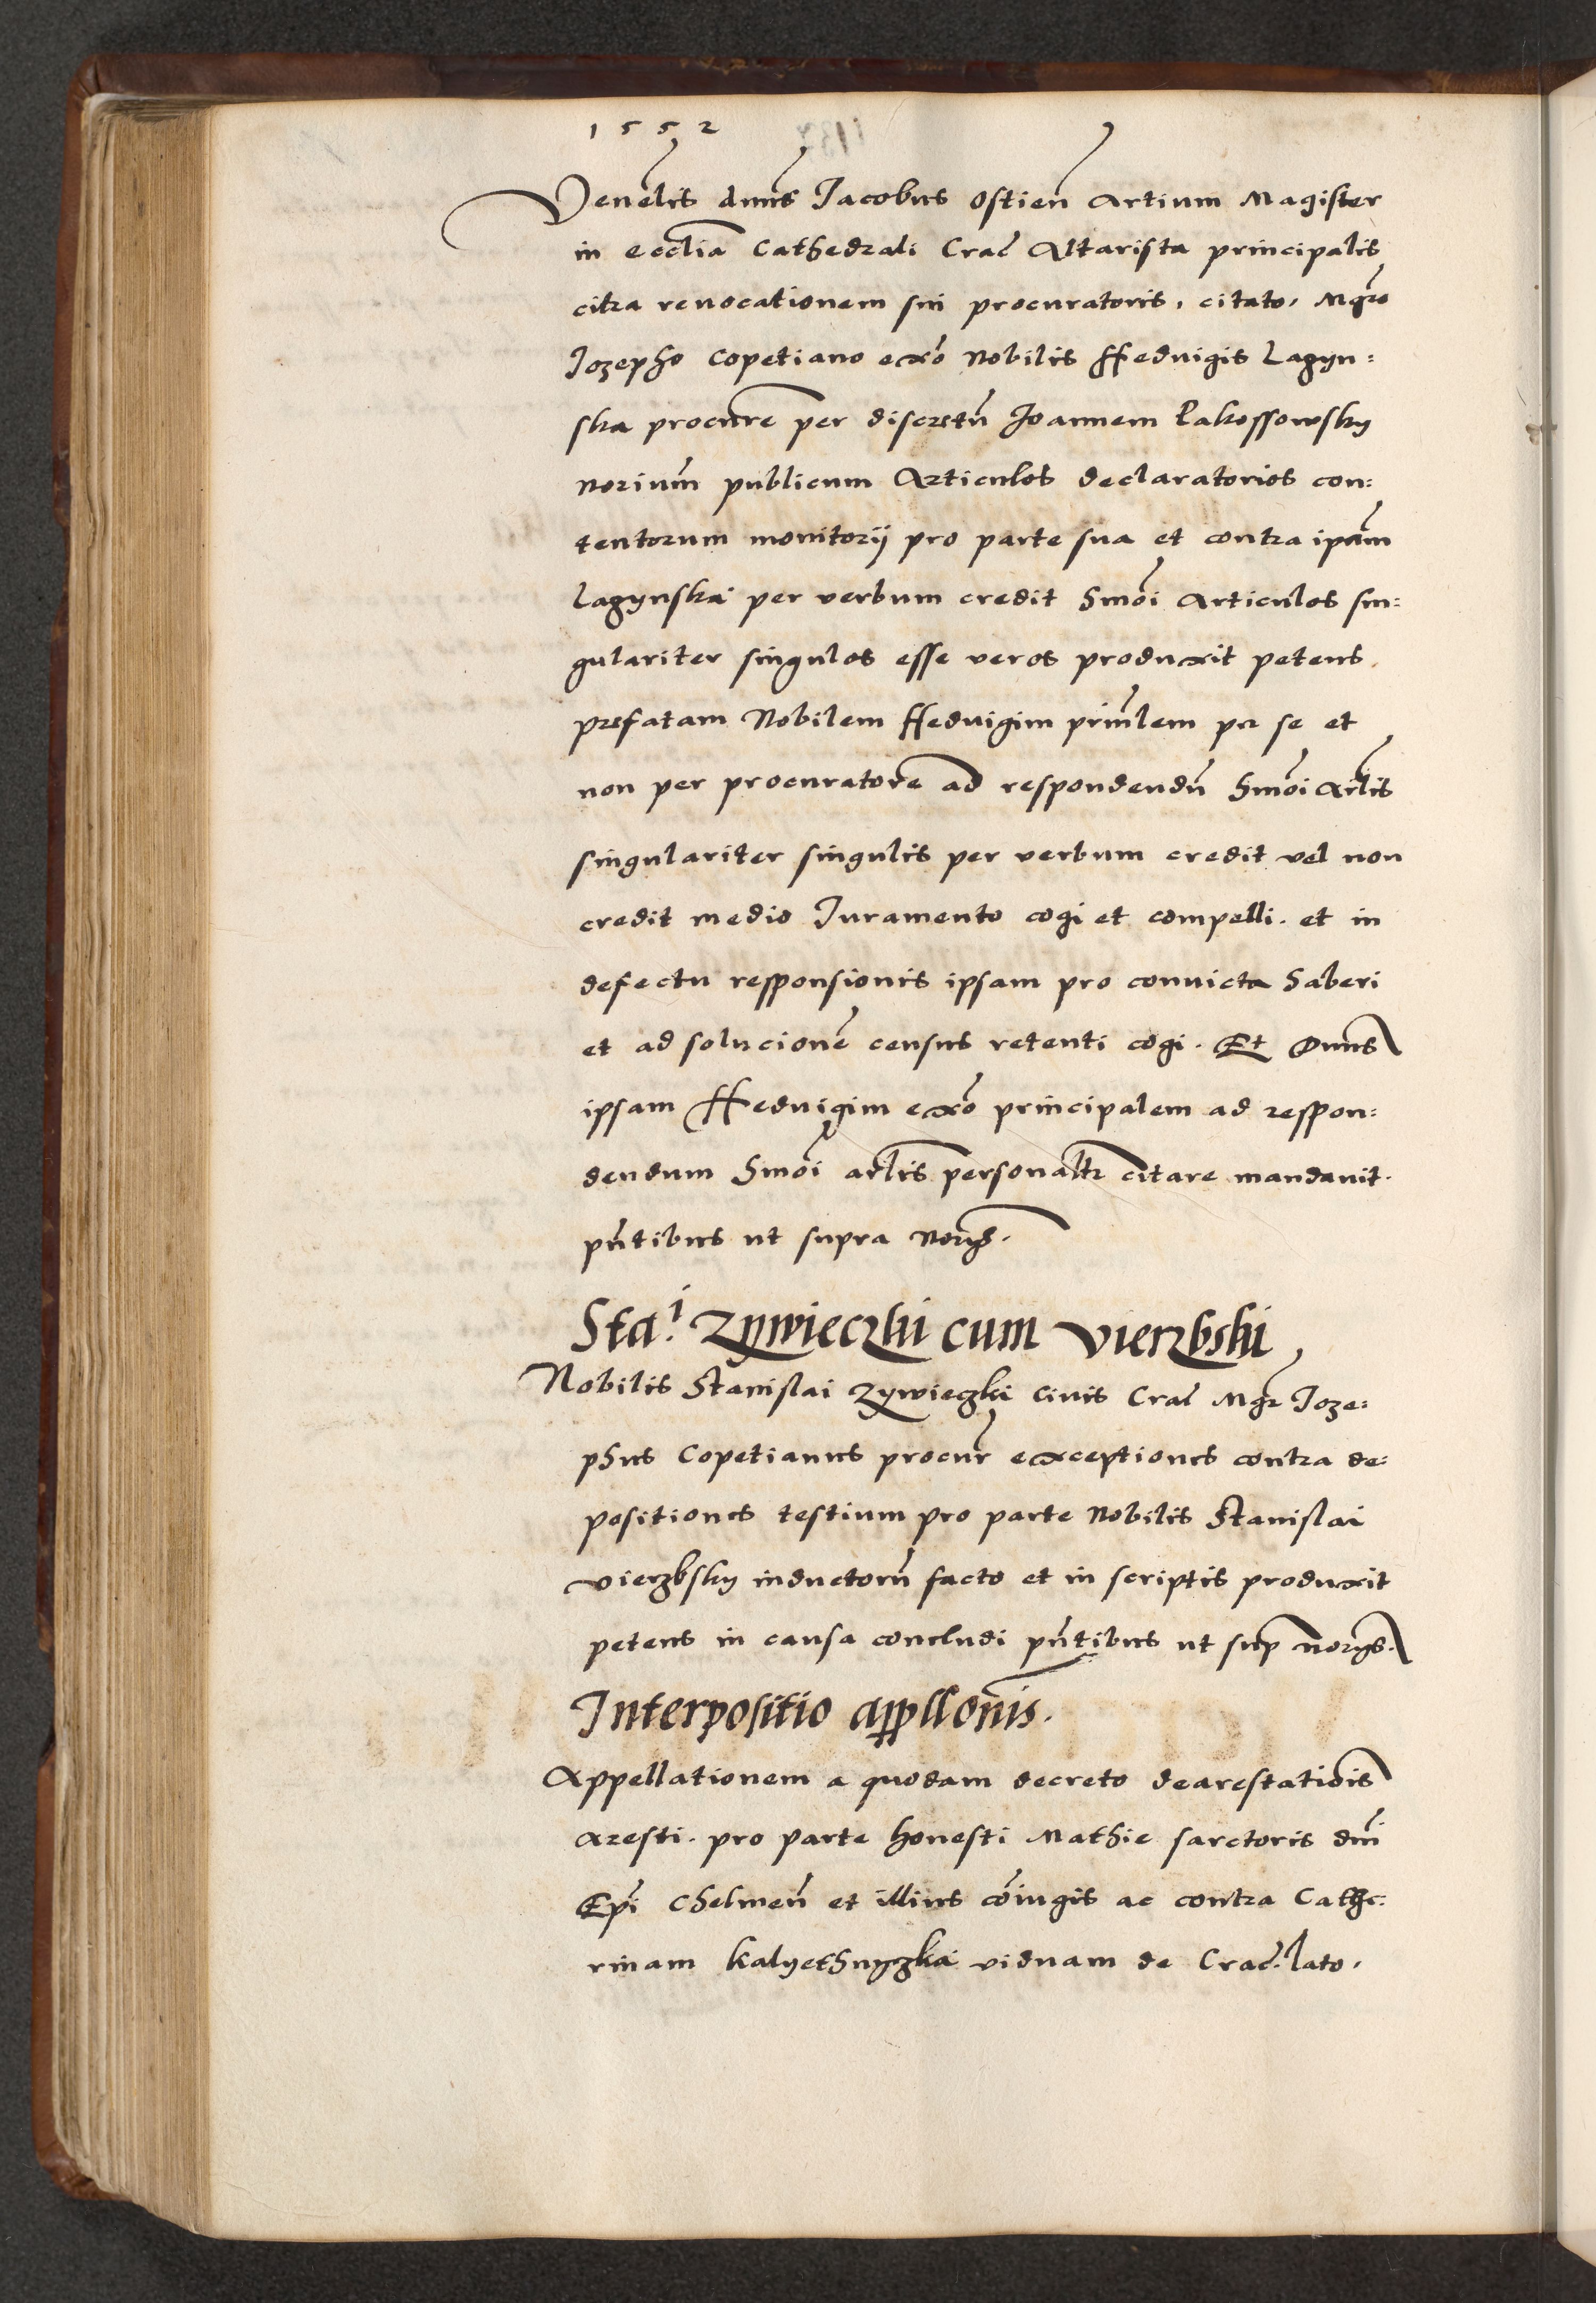 1552
Venelis dnus Jacobus Ostien Artium Magister
in ecclia Cathedrali Crac Altarista principalis
citra revocationem sui procuratoris, citato, Mgro
Jozepho Copetiano exo Nobilis Heduigis Lagyn:
ska procure per discretu Joannem Łakossowsky
Norium publicum Articulos declaratorios con:
tentorum monitorij pro parte sua et contra ipam
Lagynska per verbum credit hmoi Articulos sin:
gulariter singulos esse veros produxit petens
prefatam Nobilem Heduigim prinlem per se et
non per procuratore ad respondendu hmoi Artlis
singulariter singulis per verbum credit vel non
credit medio Juramento cogi et compelli. et in
defectu responsionis ipsam pro conuicta haberi
et ad solucione census retenti cogi. Et Dnus
ipsam Heduigim exo principalem ad respon:
dendum hmoi artlis personaltr citare mandauit.
pntibus ut supra Norijs.
Sta.i Zywieczki cum Vierzbski
Nobilis Stanislai Zywieczki Ciuis Crac Mgr Joze:
phus Copetianus procur exceptiones contra de:
positiones testium pro parte Nobilis Stanislai
Vierzbsky inductoru facto et in scriptis produxit
petens in causa concludi pntibus ut sup Norijs.
Interpositio appllonis.
Appellationem a quodam decreto dearestationis
Aresti. pro parte honesti Mathie sarctoris dni
Epi Chelmen et illius coiugis ac contra Cathe:
rinam Kalyethnyzka viduam de Crac. lato.